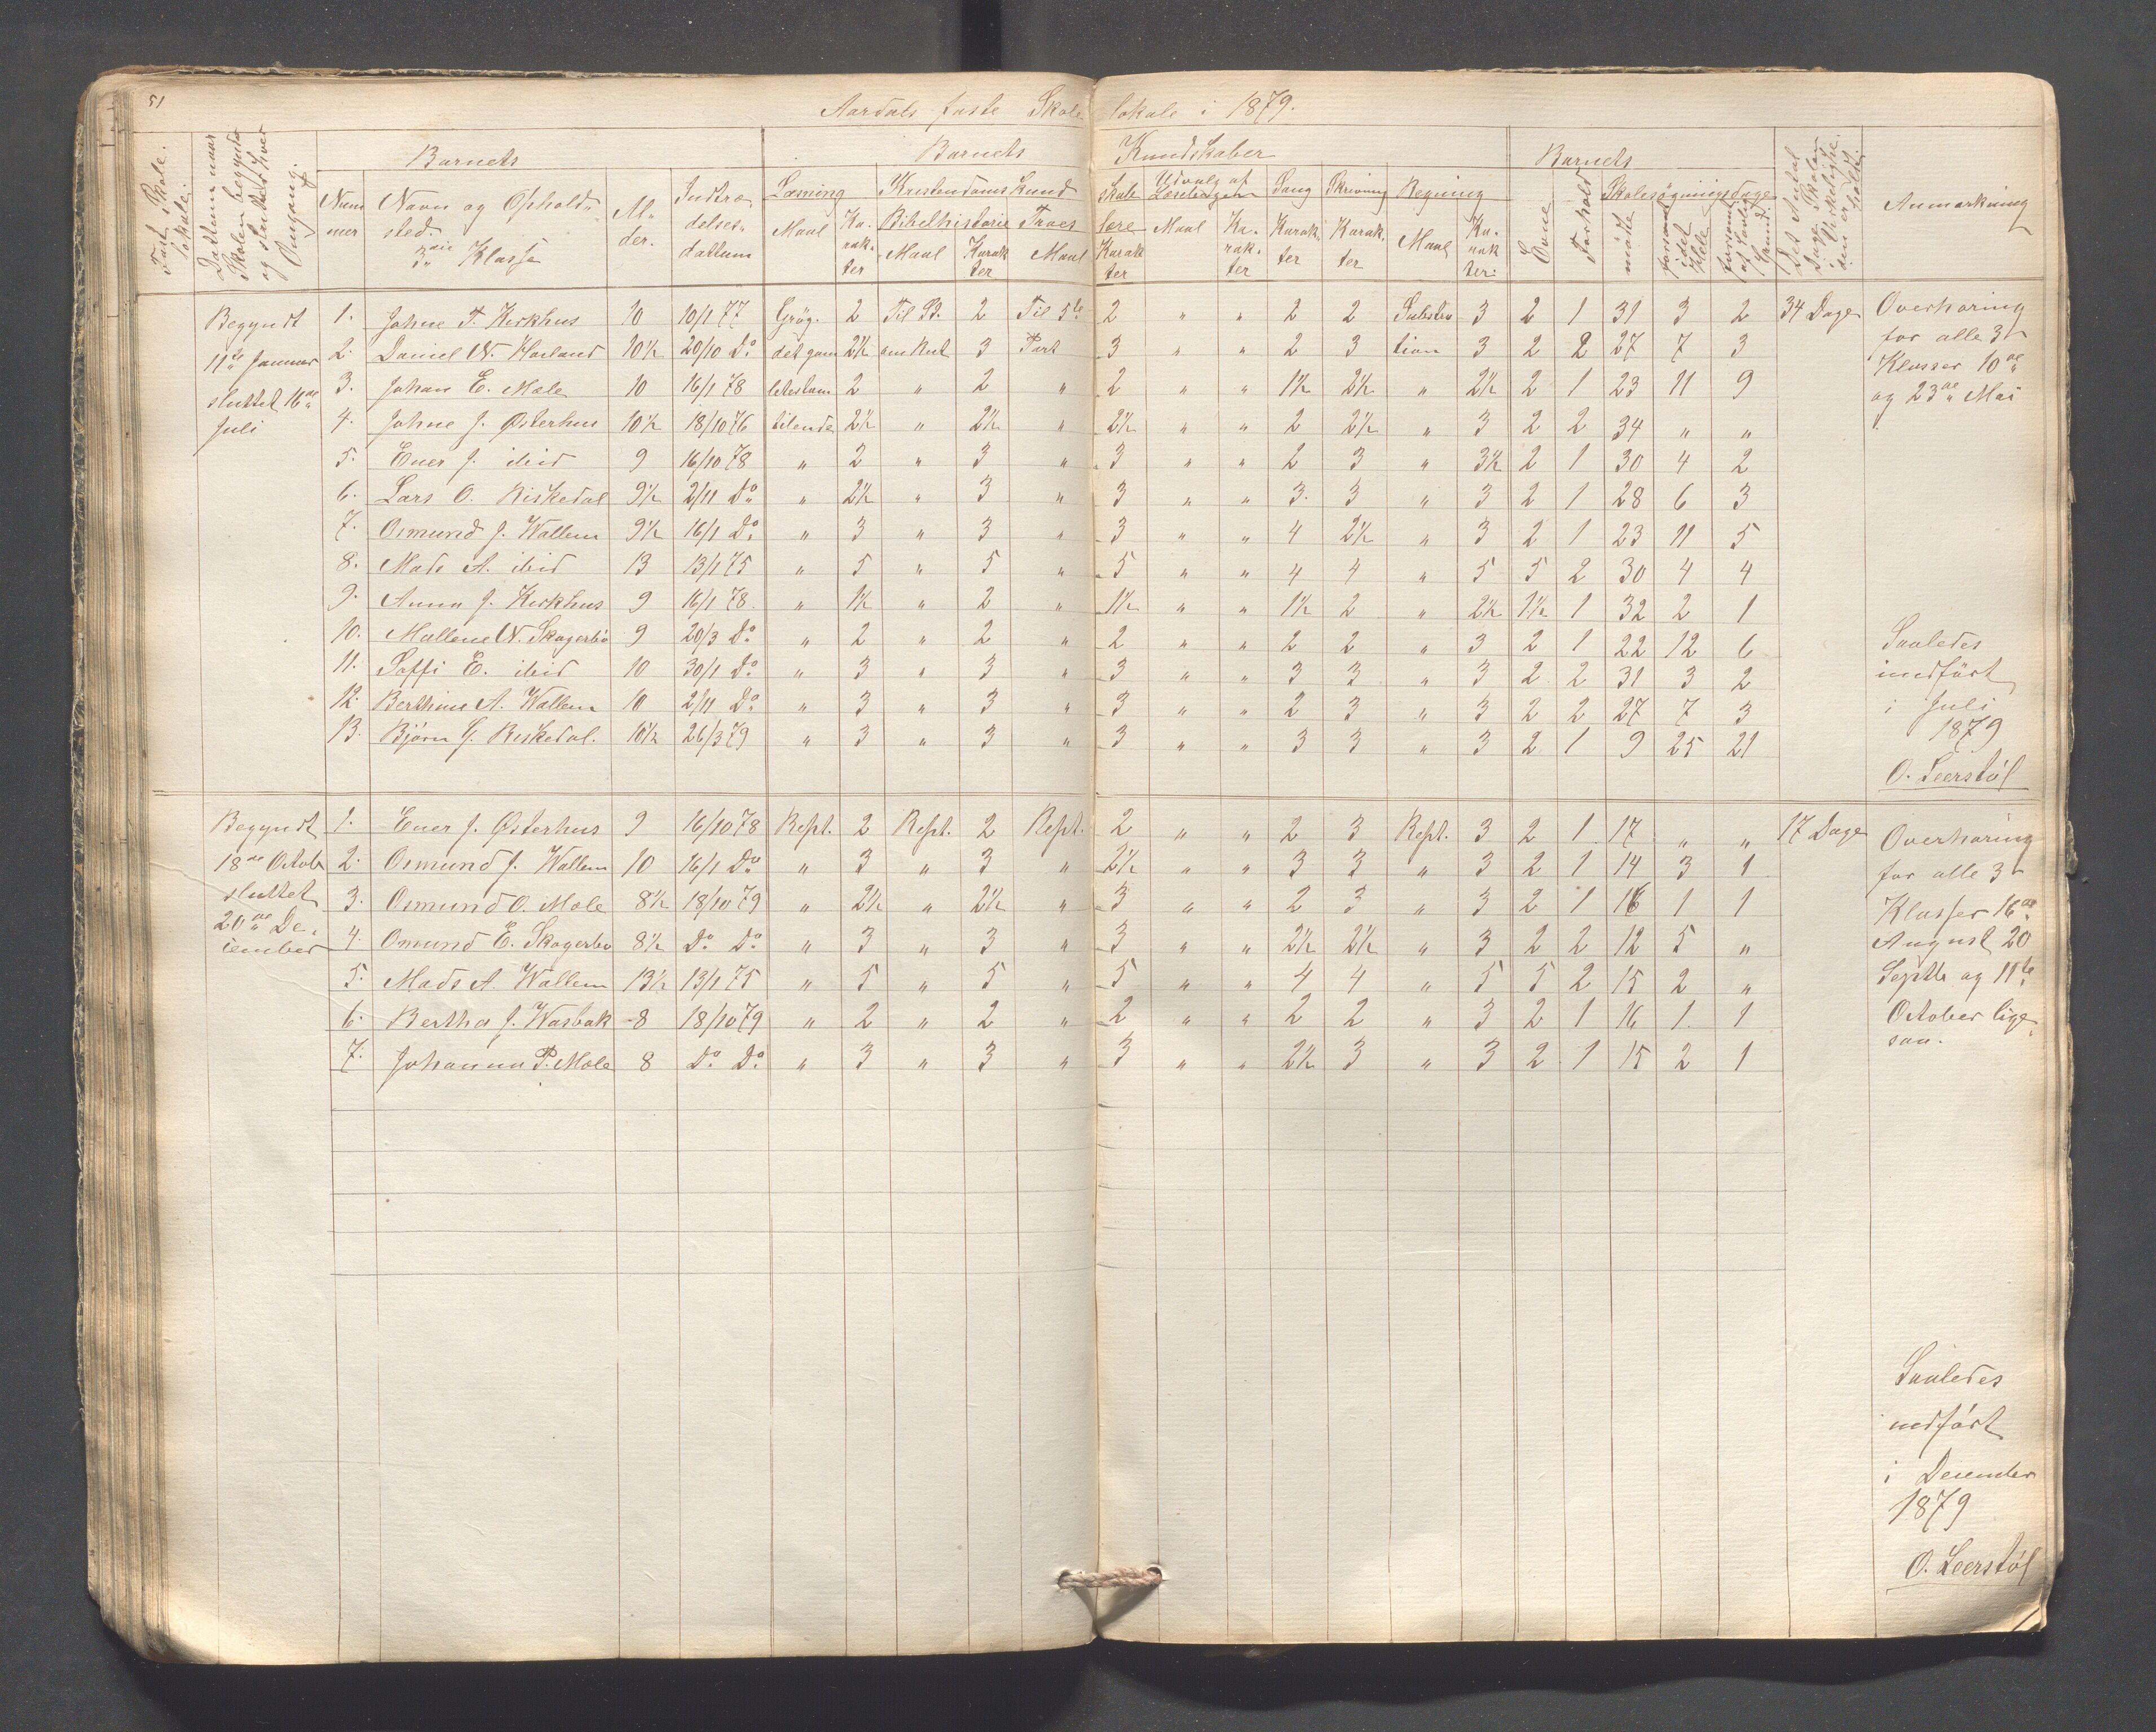 51
Aardals faste Skole lokale i 1879.
Fast Skole lokale.
Dattum naar Skolen begyndte og sluttet hver Omgang.
Barnets
Barnets Kundskaber
Barnets
Det Antal Dage Skolen i Virkeligheden er holdt.
Anmærkning
Nummer
Navn og Opholdssted. 3die Klasse
Alder.
Indtrædelsesdattum
Læsning
Kristendoms Kundskab
Udvalg af Læsebogen
Sang
Skrivning
Regning
Evne
Forhold
Skolesøgningsdage
Maal
Karakter
Bibelhistorie
Maal
Karakter
Troeslære
Maal
Karakter
Maal
Karakter
Karakter
Karakter
Maal
Karakter:
mødte
forsømt i det Hele
forsømt af lovlig Grund.
Begyndt 11te Januar sluttet 16de Juli
1. Johne T. Kirkhus 10 10/1 77 Grøg. 2 Til St. 2 Til 5te 2 " " 2 2 Subtra 3 2 1 31 3 2 34 Dage
2. Daniel N. Harland 10½ 20/10 Do det gam 2½ om Rut 3 Part 3 " " 2 3 tion 3 2 2 27 7 3
3. Johan E. Mæle 10 16/1 78 letestam 2 " 2 " 2 " " 1½ 2½ " 2½ 2 1 23 11 9
4. Johne J. Østerhus 10½ 18/10 76 tilende 2½ " 2½ " 2½ " " 2 2½ " 3 2 2 34 " "
5. Ener J. ibid 9 16/10 78 " 2 " 3 " 3 " " 2 3 " 3½ 2 1 30 4 2
6. Lars O. Riskedal 9½ 2/11 Do " 2½ " 3 " 3 " " 3. 3 " 3 2 1 28 6 3
7. Osmund J. Wallem 9½ 16/1 Do " 3 " 3 " 3 " " 4 2½ " 3 2 1 23 11 5
8. Mads A. ibid 13 13/1 75 " 5 " 5 " 5 " " 4 4 " 5 5 2 30 4 4
9. Anna J. Kirkhus 9 16/1 78. " 1½ " 2 " 1½ " " 1½ 2 " 2½ 1½ 1 32 2 1
10. Mallene N. Skogerbø 9 20/3 Do " 2 " 2 " 2 " " 2 2 " 3 2 1 22 12 6
11. Soffi E. ibid 10 30/1 Do " 3 " 3 " 3 " " 3 3 " 3 2 2 31 3 2
12. Berthine A. Wallem 10 2/11 Do " 3 " 3 " 3 " " 2 3 " 3 2 2 27 7 3
13. Bjørn G. Riskedal. 10½ 26/3 79 " 3 " 3 " 3 " " 3 3 " 3 2 1 9 25 21
Overhøring
for alle 3
Klasser 10de
og 23de Mai
Saaledes
indført
i Juli
1879
O. Leerstøl
Begyndt 18de Octob sluttet 20de December
1. Ener J. Østerhus 9 16/10 78 Rept. 2 Rept. 2 Rept. 2 " " 2 3 Rept. 3 2 1 17 " " 17 Dage
2. Osmund J. Wallem 10 16/1 Do " 3 " 3 " 2½ " " 3 3 " 3 2 1 14 3 1
3. Osmund O. Mæle 8½ 18/10 79 " 2½ " 2½ " 3 " " 2 3 " 3 2 1 16 1 1
4. Omund E. Skogerbø 8½ Do Do " 3 " 3 " 3 " " 2½ 2½ " 3 2 2 12 5 "
5. Mads A. Wallem 13½ 13/1 75 " 5 " 5 " 5 " " 4 4 " 5 5 2 15 2 "
6. Bertha J. Wasbak 8 18/10 79 " 2 " 2 " 2 " " 2 2 " 3 2 1 16 1 1
7. Johanna P. Mæle 8 Do Do " 3 " 3 " 3 " " 2½ 3 " 3 2 1 15 2 1
Overhøring
for alle 3
Klasser 16de
August 20
Septb og 11te
October lige
saa.
Saaledes
indført
i December
1879
O. Leerstøl